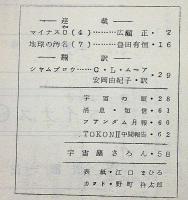 ── 連 載 ──
マイナス0(4)………広瀬 正・2
地球の汚名(7)……豊田有恒・16
── 飜 訳 ──
シャムブロウ……C・L・ムーア
安岡由紀子・訳・29
宇宙の眼・28
消息・短信・61
ファンダム月報・60
TOKONⅡ中間報告・62
宇宙塵さろん・58
表紙・江口まひろ
カット・野町祥太郎